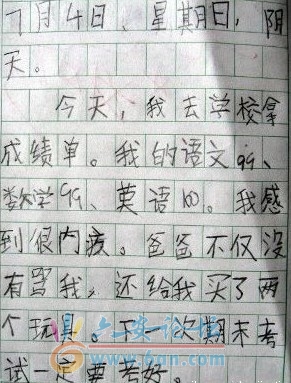 7月4日、星期日,阴
天。
今天,我去学校拿
成绩单。我的语文99、
数学99、英语100。我感
到很内疚。爸爸不仅没
有骂我,还给我买了两
个玩具。下一次期末考
试一定要考好。
六安论坛